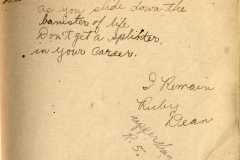 as you slide down the
banister of life
Don't get a splinter
in your career.
I Remain
Ruby
Dean
R.5.